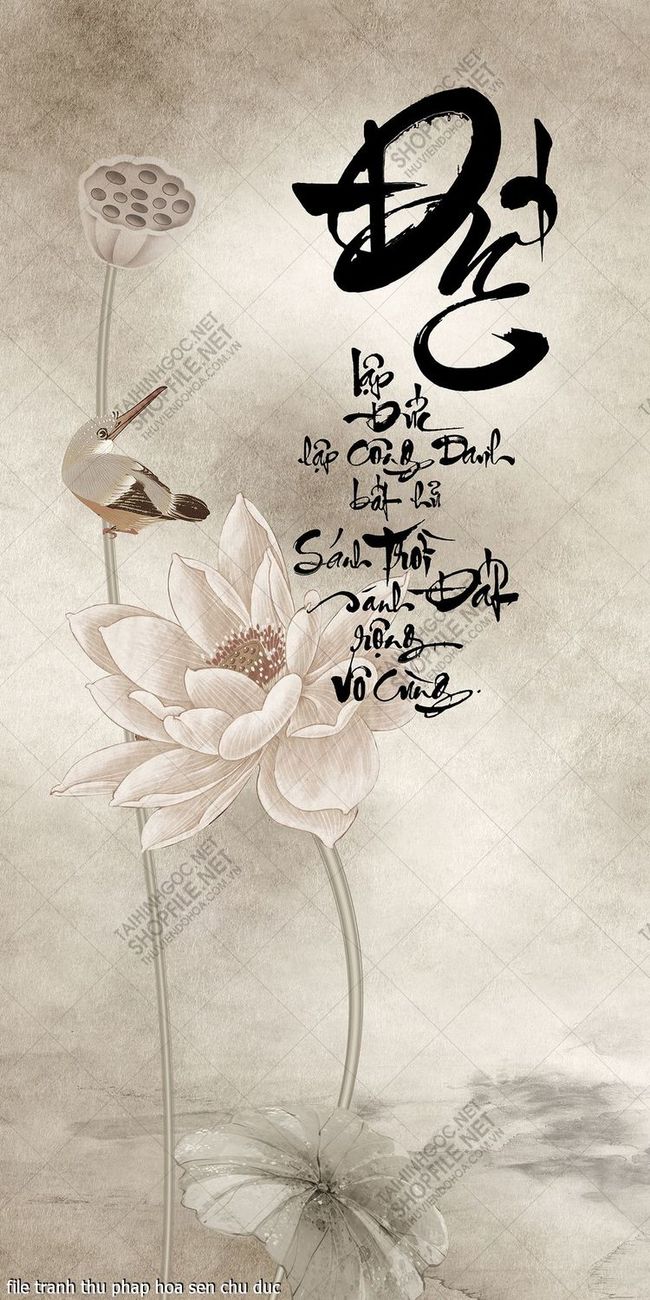 Đức
lập
Đức
lập Công Danh
bất hủ
Sánh Trời
sánh Đất
rộng
Vô Cùng.
TAIHINHGOC.NET
SHOPFILE.NET
THUVIENDOHOA.COM.VN
TAIHINHGOC.NET
SHOPFILE.NET
THUVIENDOHOA.COM.VN
TAIHINHGOC.NET
SHOPFILE.NET
THUVIENDOHOA.COM.VN
TAIHINHGOC.NET
SHOPFILE.NET
THUVIENDOHOA.COM.VN
file tranh thu phap hoa sen chu duc